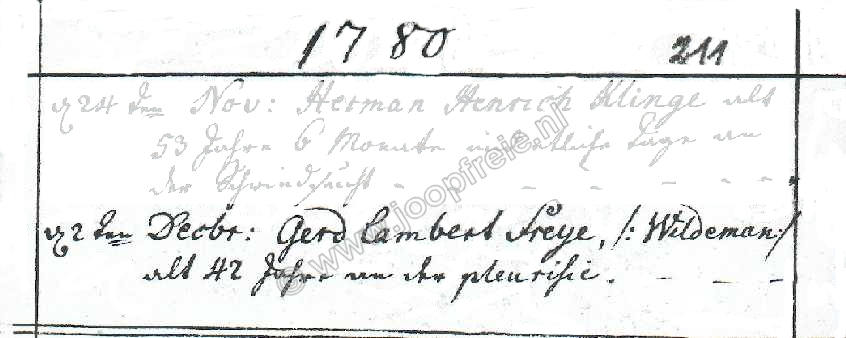 1780 211
24 den Nov: Herman Henrich Klinge alt
53 Jahre 6 Monate und etliche Tage an
der Schwindsucht - - - - - -
2 ten Decbr: Gerd Lambert Freye, /: Wildeman :/
alt 42 Jahre an der pleurisie. - - - -
© www.joopfreie.nl